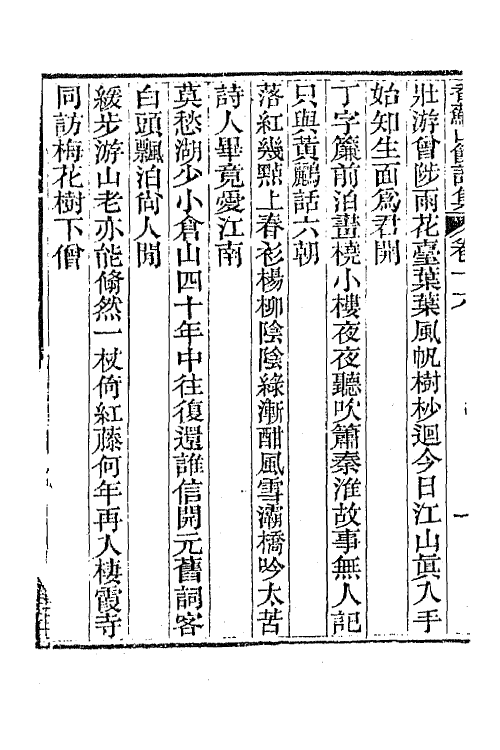 壯游曾陟雨花臺葉葉風帆樹杪迴今日江山眞入手
始知生面爲君開
丁字簾前泊畫橈小樓夜夜聽吹簫秦淮故事無人記
只與黃鸝話六朝
落紅幾點上春衫楊柳陰陰綠漸酣風雪灞橋吟太苦
詩人畢竟愛江南
莫愁湖少小倉山四十年中往復還誰信開元舊詞客
白頭飄泊尙人閒
緩步游山老亦能翛然一杖倚紅藤何年再入棲霞寺
同訪梅花樹下僧